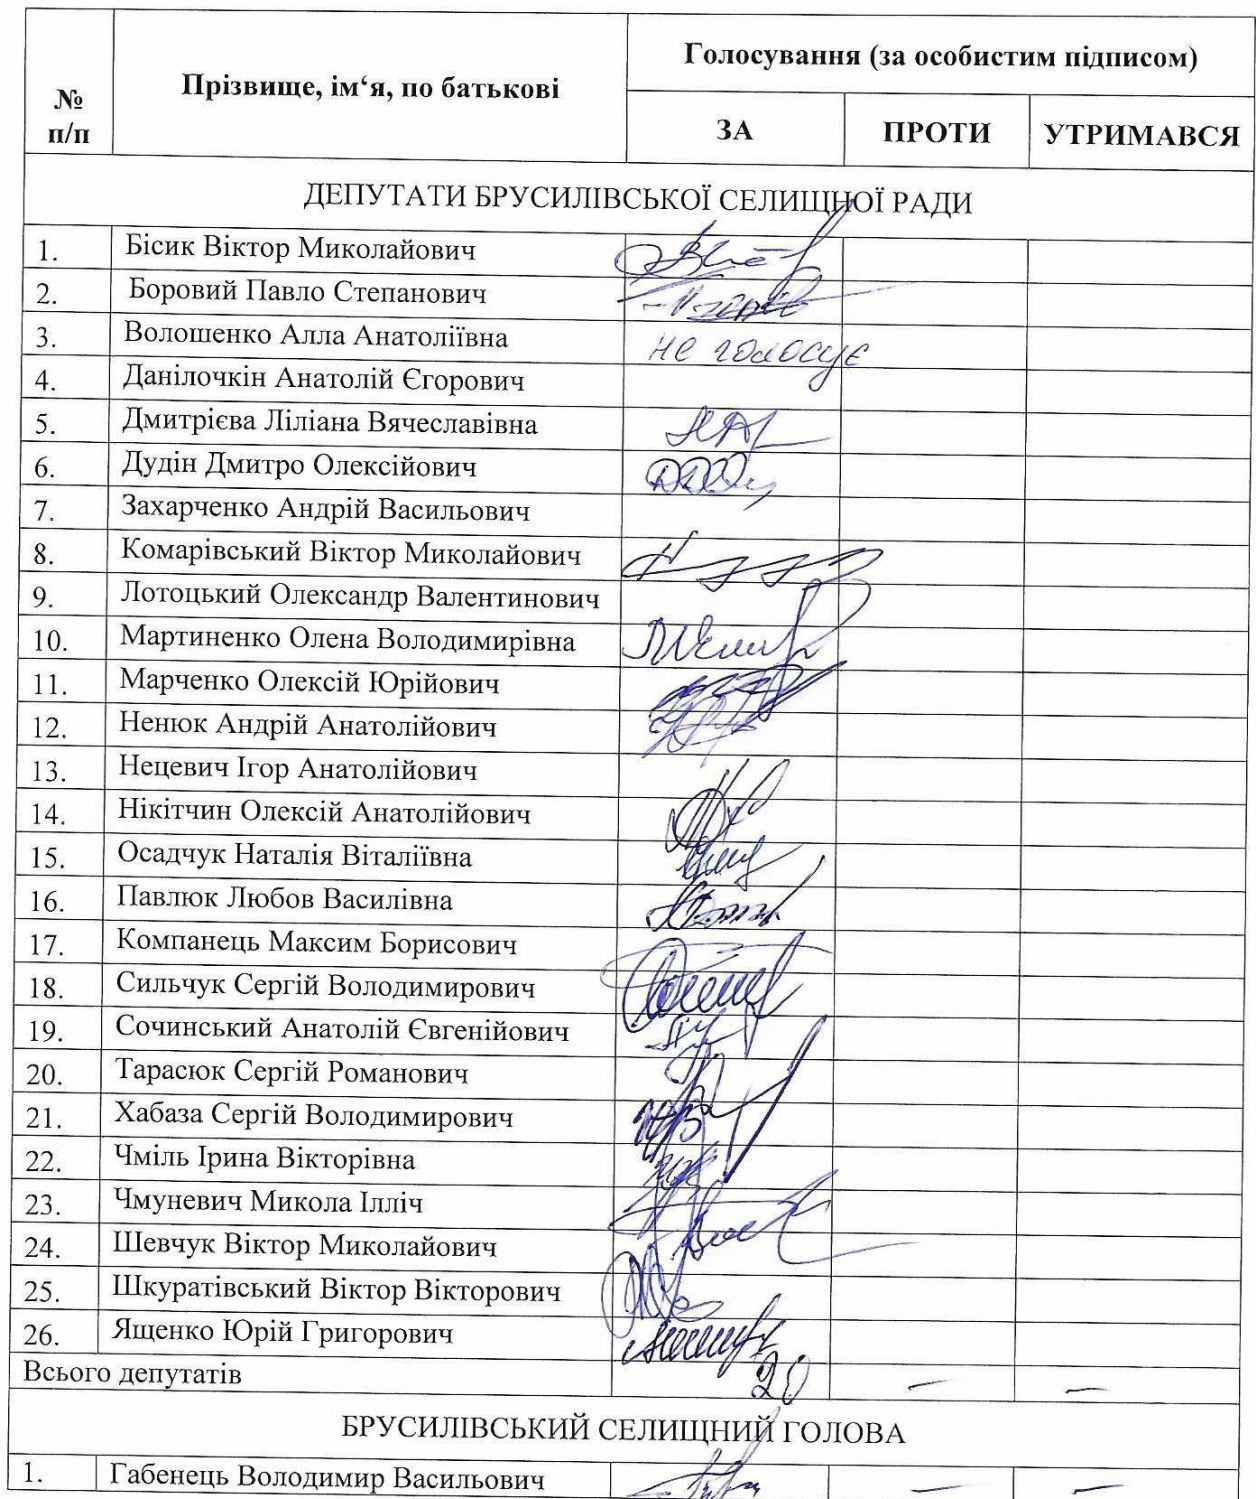 № п/п
Прізвище, ім‘я, по батькові
Голосування (за особистим підписом)
ЗА
ПРОТИ
УТРИМАВСЯ
ДЕПУТАТИ БРУСИЛІВСЬКОЇ СЕЛИЩНОЇ РАДИ
1. Бісик Віктор Миколайович
2. Боровий Павло Степанович
3. Волошенко Алла Анатоліївна не голосує
4. Данілочкін Анатолій Єгорович
5. Дмитрієва Ліліана Вячеславівна
6. Дудін Дмитро Олексійович
7. Захарченко Андрій Васильович
8. Комарівський Віктор Миколайович
9. Лотоцький Олександр Валентинович
10. Мартиненко Олена Володимирівна
11. Марченко Олексій Юрійович
12. Ненюк Андрій Анатолійович
13. Нецевич Ігор Анатолійович
14. Нікітчин Олексій Анатолійович
15. Осадчук Наталія Віталіївна
16. Павлюк Любов Василівна
17. Компанець Максим Борисович
18. Сильчук Сергій Володимирович
19. Сочинський Анатолій Євгенійович
20. Тарасюк Сергій Романович
21. Хабаза Сергій Володимирович
22. Чміль Ірина Вікторівна
23. Чмуневич Микола Ілліч
24. Шевчук Віктор Миколайович
25. Шкуратівський Віктор Вікторович
26. Ященко Юрій Григорович
Всього депутатів 20 – –
БРУСИЛІВСЬКИЙ СЕЛИЩНИЙ ГОЛОВА
1. Габенець Володимир Васильович – –